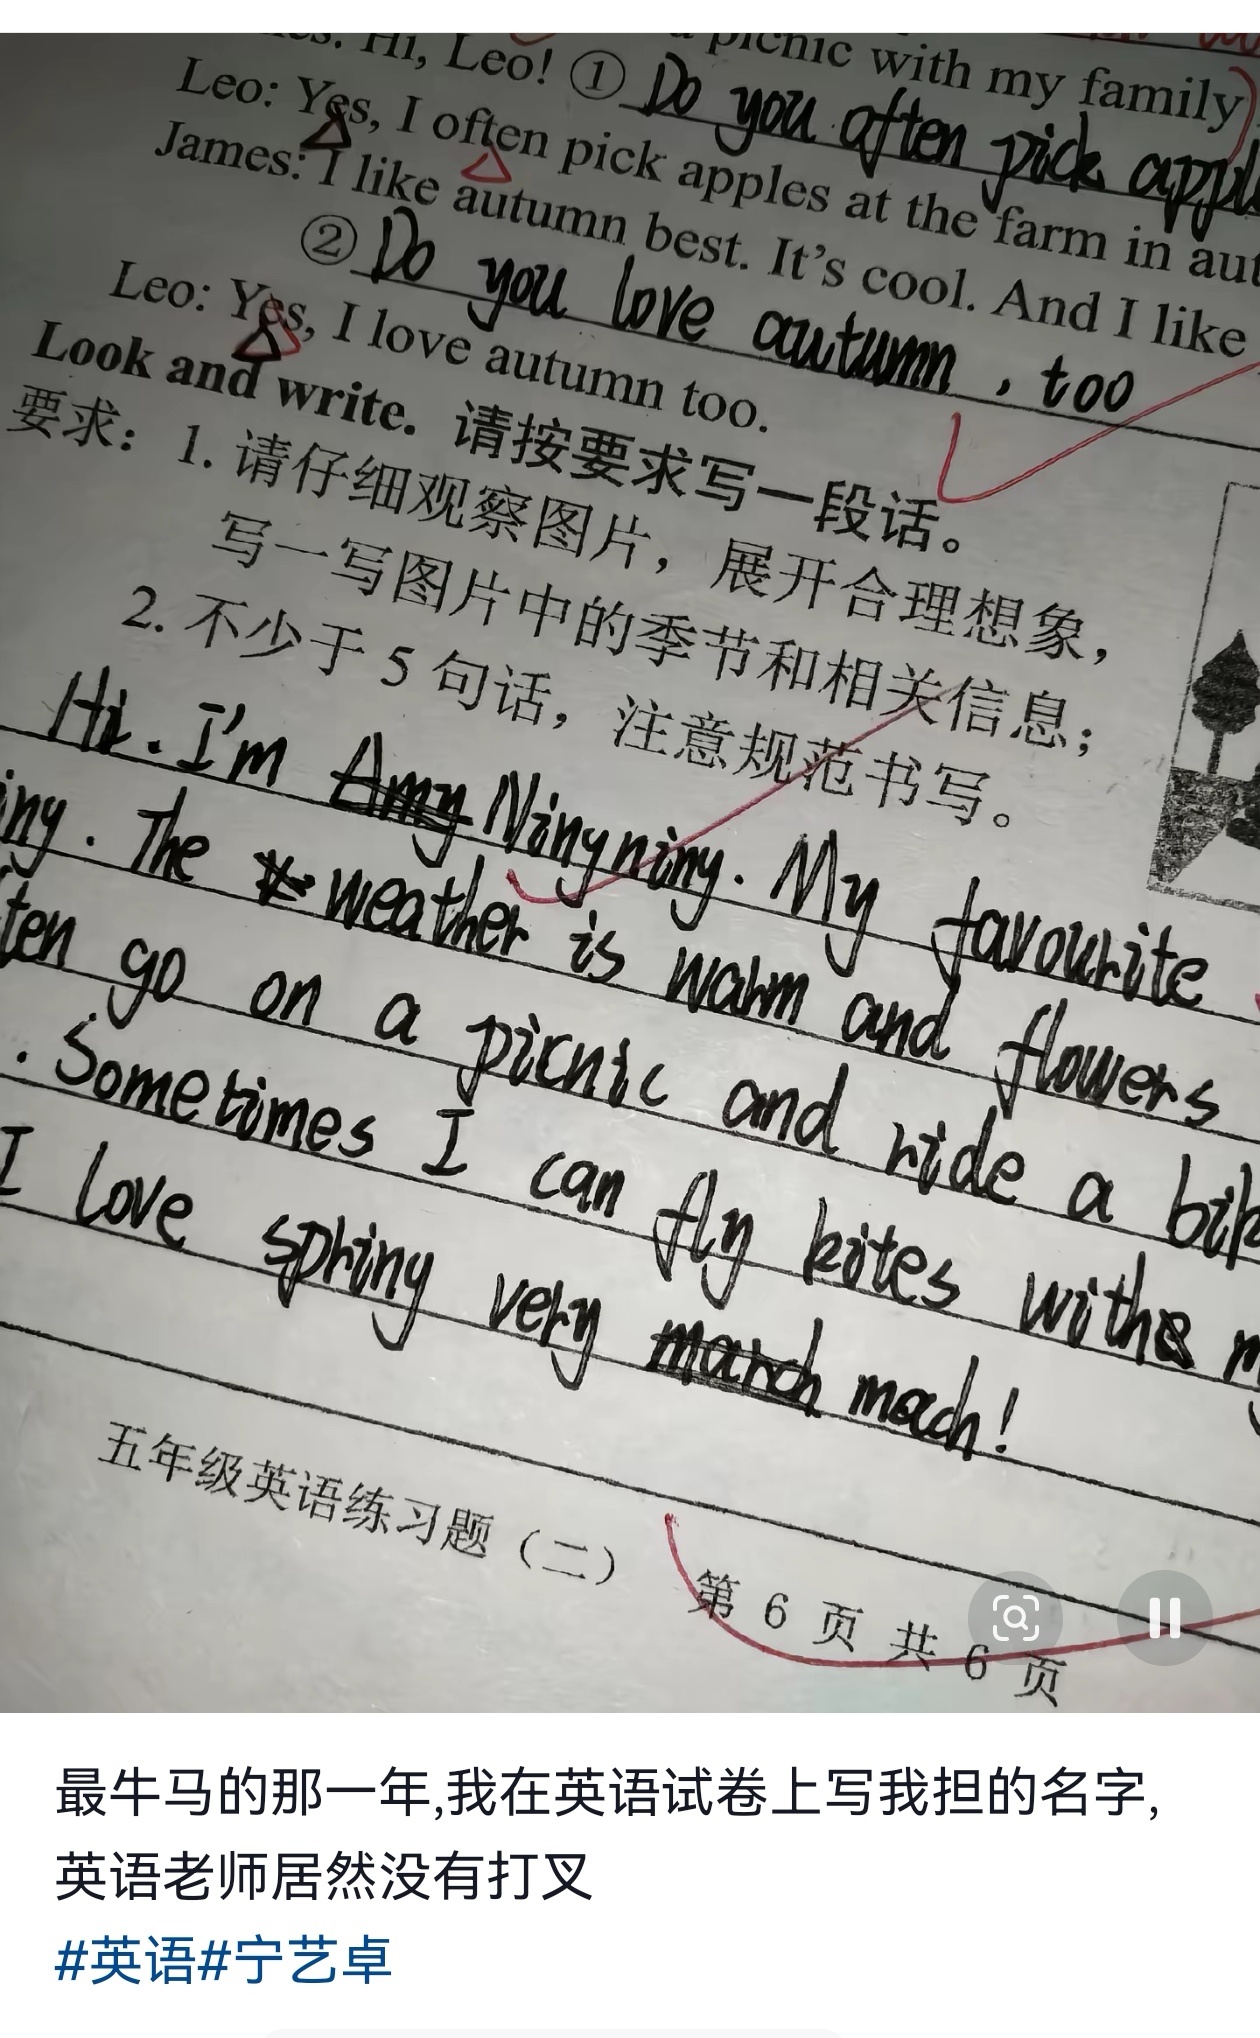 Hi, Leo! ① Do you often pick
picnic with my family
Leo: Yes, I often pick apples at the farm in
James: I like autumn best. It's cool. And I like
② Do you love autumn, too
Leo: Yes, I love autumn too.
Look and write. 请按要求写一段话。
要求：1. 请仔细观察图片，展开合理想象，
写一写图片中的季节和相关信息；
2. 不少于 5 句话，注意规范书写。
Hi. I'm Amy Ningning. My favourite
The weather is warm and flowers
go on a picnic and ride a
. Sometimes I can fly kites with
I love spring very march mach!
五年级英语练习题（二） 第 6 页 共 6 页
最牛马的那一年,我在英语试卷上写我担的名字,
英语老师居然没有打叉
#英语#宁艺卓